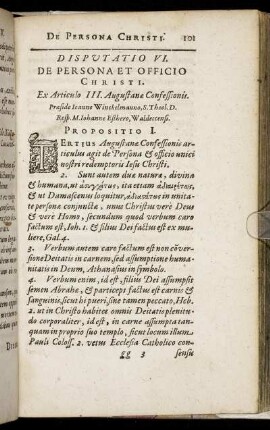 DE PERSONA CHRISTI. 101
DISPUTATIO VI.
DE PERSONA ET OFFICIO
CHRISTI.
Ex Articulo III. Augustanæ Confessionis.
Præside Ioanne Winckelmanno, S. Theol. D.
Resp. M. Iohanne Eschero, Waldeccensi.
PROPOSITIO I.
TERTIUS Augustanæ Confessionis ar-
ticulus agit de Persona & officio unici
nostri redemptoris Iesu Christi.
2. Sunt autem duæ naturæ, divina
& humana, ut ἀσυγχύτως, ita etiam ἀδιαιρέτως,
& ut Damascenus loquitur, in unita-
te personæ conjunctæ, unus Christus verè Deus
& verè Homo, secundum quod verbum caro
factum est, Joh. 1. & filius Dei factus est ex mu-
liere, Gal. 4.
3. Verbum autem caro factum est non cõver-
sione Deitatis in carnem, sed assumptione huma-
nitatis in Deum, Athanasius in symbolo.
4. Verbum enim, id est, filius Dei assumpsit
semen Abrahæ, & particeps factus est carnis &
sanguinis, sicut hi pueri, sine tamen peccato, Heb.
2. ut in Christo habitet omnis Deitatis plenitu-
do corporaliter, id est, in carne assumpta tan-
quam in proprio suo templo, sicut locum illum
Pauli Coloss. 2. vetus Ecclesia Catholico con-
gg 3 sensu